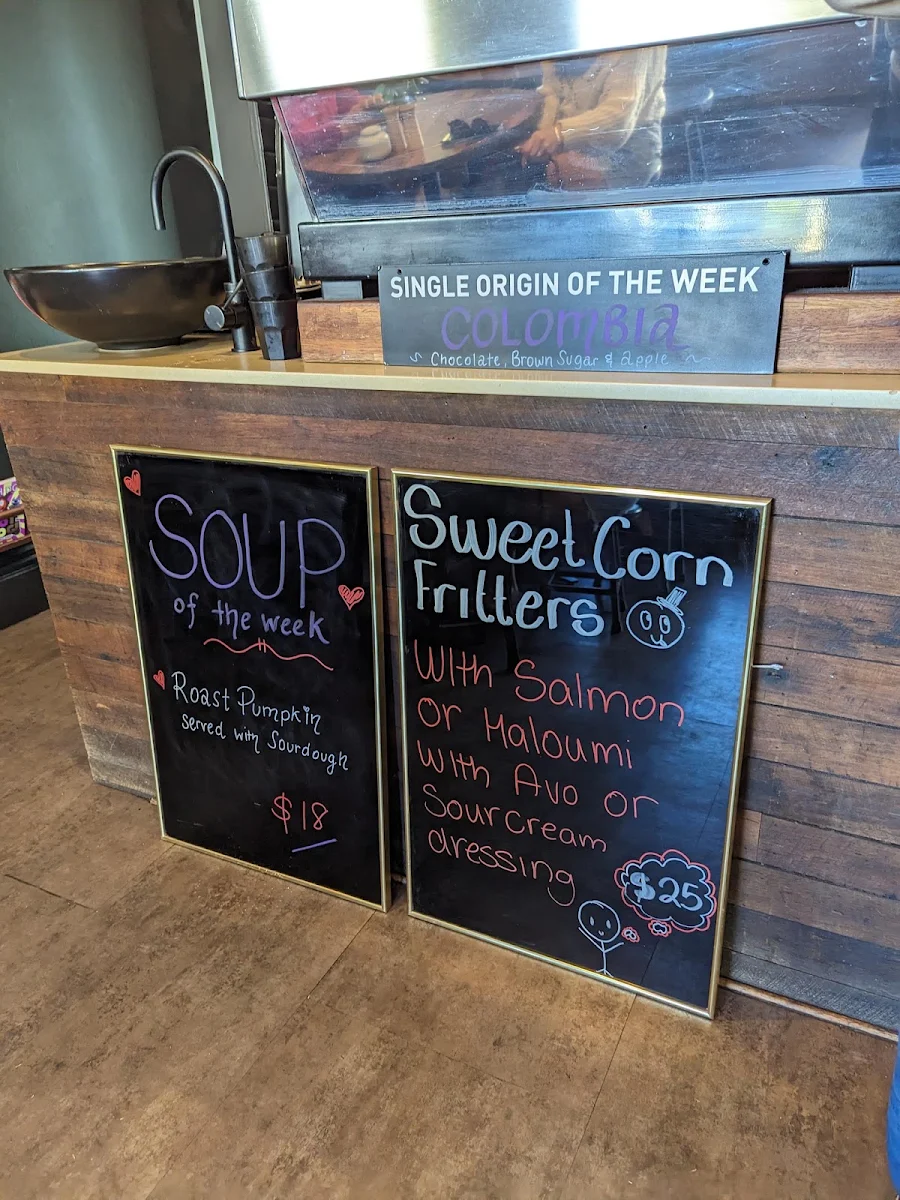 SINGLE ORIGIN OF THE WEEK
COLOMBIA
~ Chocolate, Brown Sugar & Apple ~
SOUP
of the week
Roast Pumpkin
Served with Sourdough
$18
Sweet Corn
Fritters
With Salmon
Or Haloumi
With Avo or
Sour Cream
dressing
$25